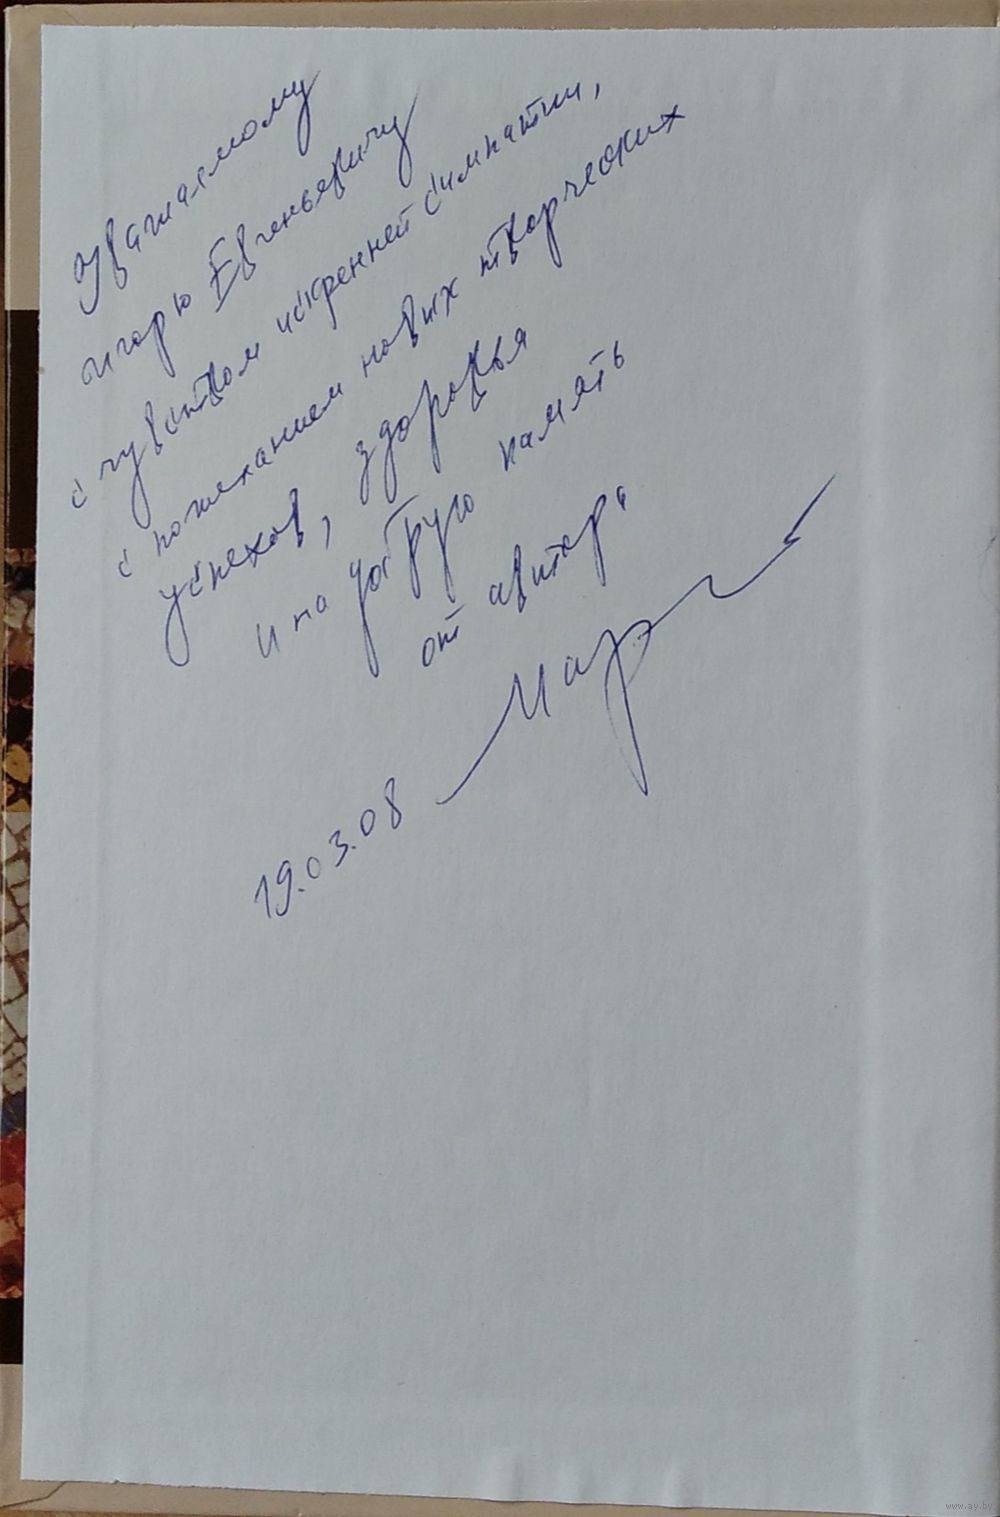 Уважаемому
Игорю Евгеньевичу
с чувством искренней симпатии,
с пожеланием новых творческих
успехов, здоровья
и на добрую память
от автора
19.03.08
www.ay.by